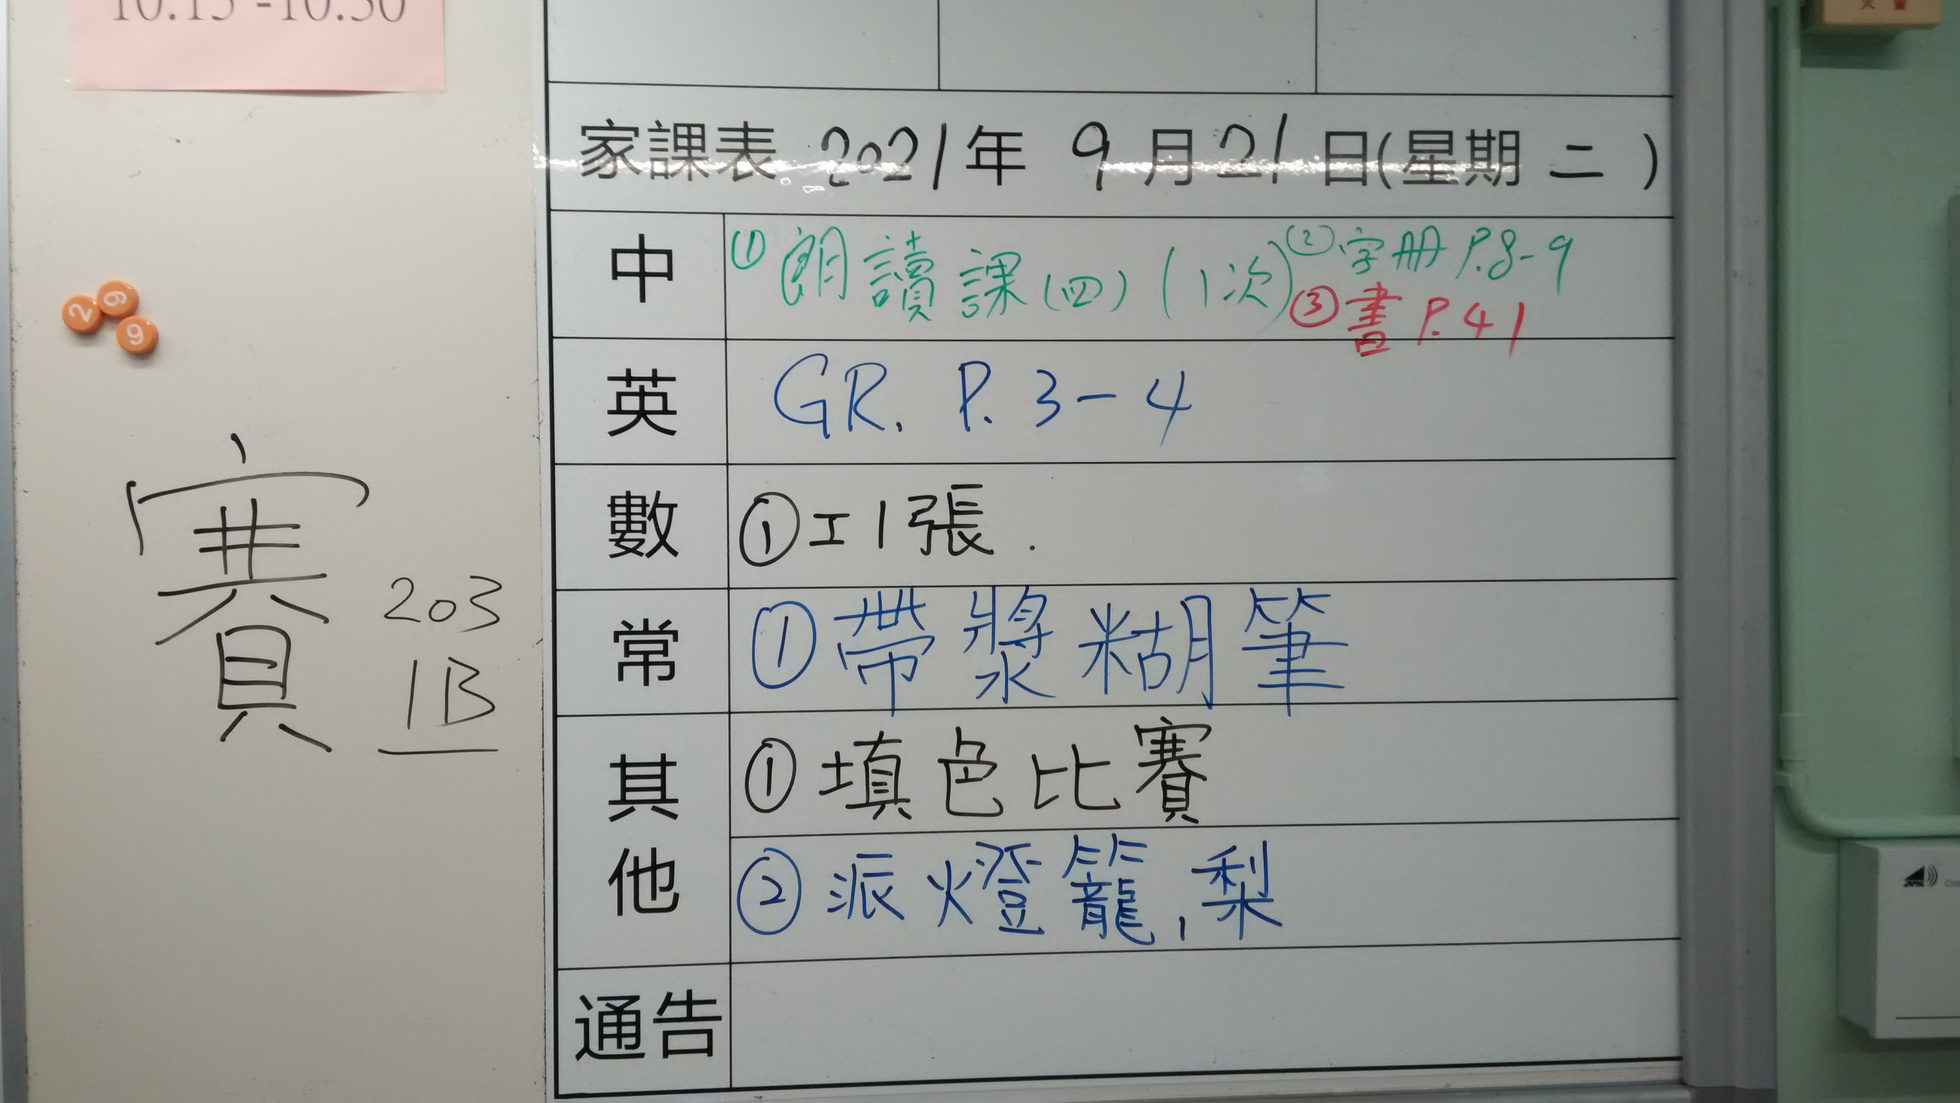 10:15 -10:30
家課表 2021年 9月21日(星期 二 )
中 ① 朗讀課(四) (1次) ② 字册 P.8-9
③ 書 P.41
英 GR. P. 3-4
數 ① 工1張.
常 ① 帶漿糊筆
其他 ① 填色比賽
② 派燈籠,梨
通告
賽
203
1B
2
9
9